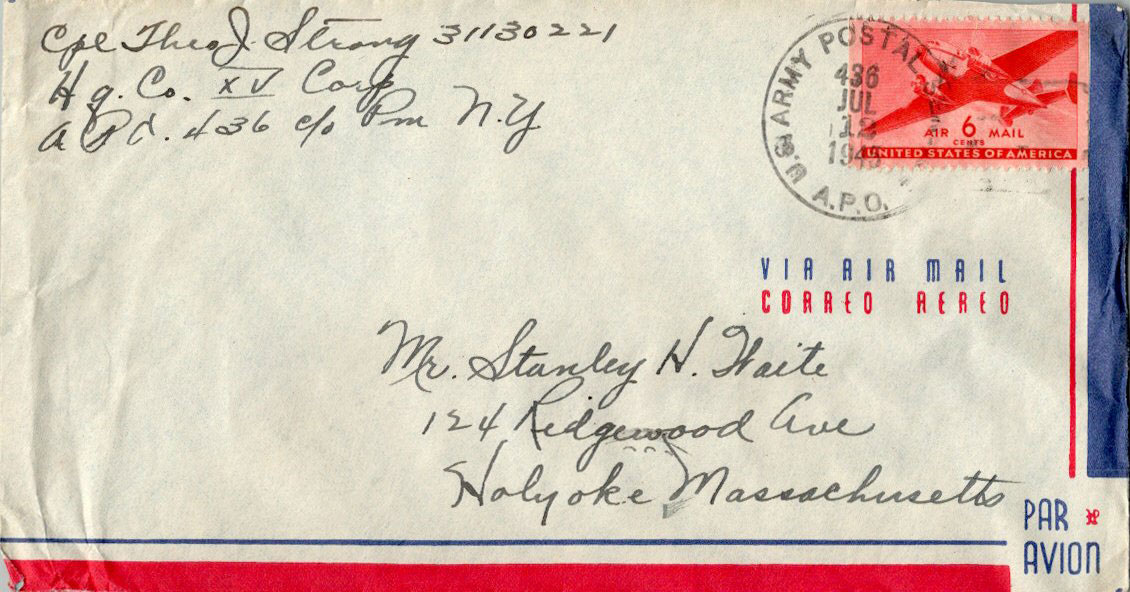 Cpl Theo J. Strong 31130221
Hq. Co. XV Corp
A.P.O. 436 c/o Pm N.Y.
U.S. ARMY POSTAL
436
JUL
12
A.P.O.
AIR 6 MAIL
CENTS
UNITED STATES OF AMERICA
VIA AIR MAIL
CORREO AEREO
Mr. Stanley H. Waite
124 Ridgewood Ave
Holyoke Massachusetts
PAR
AVION